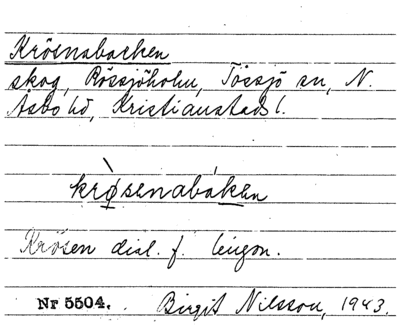 Krösnabacken
skog, Rössjöholm, Tössjö sn, N.
Åsbo hd, Kristianstads l.
krø̀senabáken
Krösen dial. f. lingon.
Nr 5504. Birgit Nilsson, 1943.